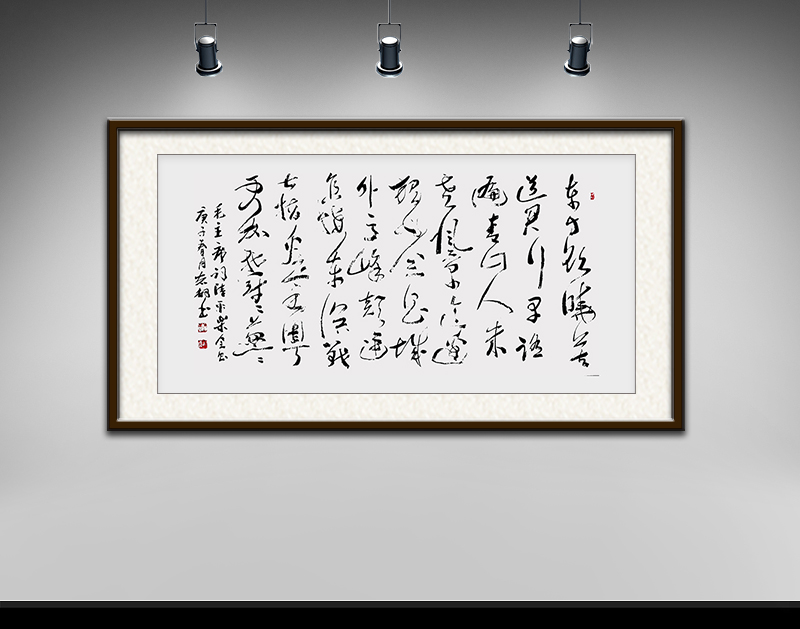 东方欲晓莫
道君行早踏
遍青山人未
老风景这边
独好会昌城
外高峰颠连
直接东溟战
士指看南粤
更加郁郁葱葱
毛主席词清平乐会昌
庚子春月书